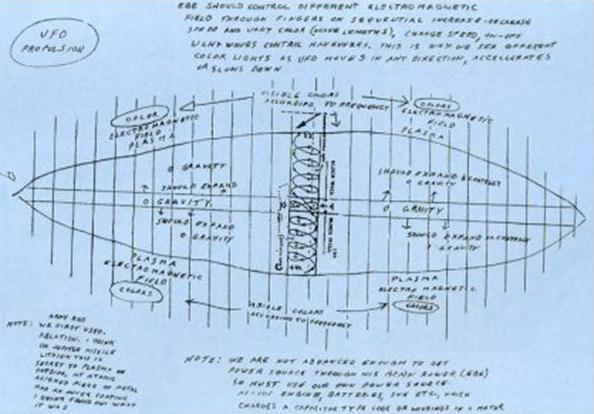 UFO
PROPULSION
EBE SHOULD CONTROL DIFFERENT ELECTROMAGNETIC
FIELD THROUGH FINGERS ON SEQUENTIAL INCREASE-DECREASE
SPEED AND VARY COLOR (WAVE LENGTHS), CHANGE SPEED, ON-OFF
LIGHT WAVES CONTROL MANEUVERS. THIS IS WHY WE SEE DIFFERENT
COLOR LIGHTS AS UFO MOVES IN ANY DIRECTION, ACCELERATES
OR SLOWS DOWN
VISIBLE COLORS
ACCORDING TO FREQUENCY
COLOR
ELECTROMAGNETIC
FIELD
PLASMA
COLORS
ELECTROMAGNETIC
FIELD
PLASMA
0 GRAVITY
SHOULD EXPAND
0 GRAVITY
SHOULD EXPAND
0 GRAVITY
SHOULD EXPAND & CONTRACT
0 GRAVITY
0 GRAVITY
SHOULD EXPAND OR CONTRACT
0 GRAVITY
PLASMA
ELECTROMAGNETIC
FIELD
COLORS
PLASMA
ELECTRO MAGNETIC
FIELD
COLORS
VISIBLE COLORS
ACCORDING TO FREQUENCY
NOTE: WE FIRST USED
OR JUPITER MISSILE
SECRET TO PLASMA OR
PIECE OF METAL
HAD AN OUTER COATING
I NEVER FOUND OUT WHAT
IT WAS
NOTE: WE ARE NOT ADVANCED ENOUGH TO GET
POWER SOURCE THROUGH HIS BRAIN POWER (EBE)
SO MUST USE OUR OWN POWER SOURCE.
ENGINE, BATTERIES, ETC, WHICH
CHARGES A CAPACITOR TYPE CORE OR WINDINGS IN A MOTOR